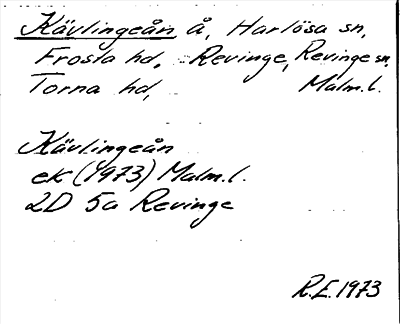 Kävlingeån å, Harlösa sn,
Frosta hd, Revinge, Revinge sn,
Torna hd, Malm.l.
Kävlingeån
ek (1973) Malm.l.
2D 5a Revinge
R.E. 1973